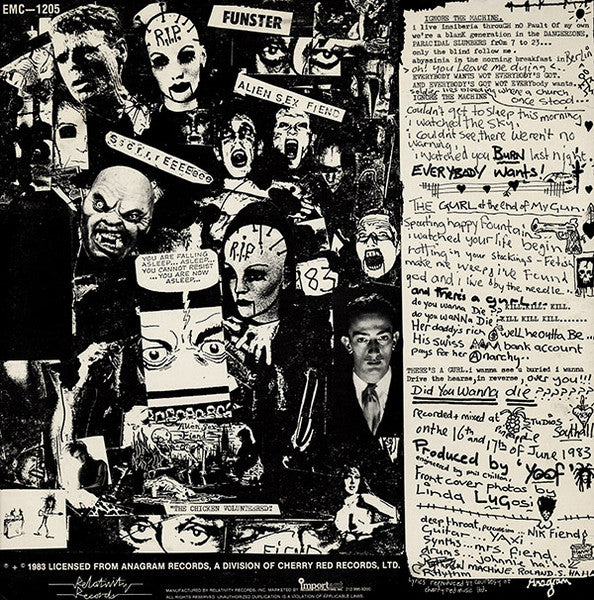 EMC—1205
FUNSTER
R.I.P
ALIEN SEX FIEND
SSCT.rrEEEeee
YOU ARE FALLING
ASLEEP... ASLEEP...
YOU CANNOT RESIST
...YOU ARE NOW
ASLEEP...
R.I.P
83
Alien
Fiend
"THE CHICKEN VOLUNTEERED!"
FIEND
℗ + © 1983 LICENSED FROM ANAGRAM RECORDS, A DIVISION OF CHERRY RED RECORDS, LTD.
Relativity
Records
MANUFACTURED BY RELATIVITY RECORDS, INC. MARKETED BY
important
ALL RIGHTS RESERVED. UNAUTHORIZED DUPLICATION IS A VIOLATION OF APPLICABLE LAWS.
IGNORE THE MACHINE.
i live insiberia througH nO Fault Of my own
we're a blanK generation in the DANGERZONE,
PARACIDAL SLUMBERS frOm 7 to 23...
only the blind follow me.
abyssinia in the morning breakfast in Berlin
oh! you Leave me dying s..
EVERYBODY WANTS WOT EVERYBODY'S GOT.
AND EVERYBODYS GOT WOT EVERYBODY wants.
soldier lies bleeding where a quard
IGNORE THE MACHINE once stood...
Couldn't get to sleep this morning
i watched the sky.
i couldnt see, there weren't no
warning,
i watched you BURN last night
EVERYBODY Wants!
THE GURL at the End of My Gun.
Spouting happy Fountain
i watched your life begin
rotting in your stockings - Fetish
make me weep, ive Found
god and i live by the needle..
and there's a gurl..
do you wanna Die ?? KILL.KILL. KILL.
do you waNNa Die KILL KILL KILL.....
Her daddy's rich & well heoutta Be...
His swiss bank account
pays for her Anarchy..
THERE'S A GURL.i wanna see u buried i wanna
Drive the hearse, in reverse, over you!!!
Did You Wanna die ??????
Recorded + mixed at
Pineapple STUDIOS
Southall
on the 16th and 17th of June 1983
Produced by 'Youf'
engineered by phil Chillon.
Front cover photos by
Linda Lugosi
deep throat, percussion ... NIK Fiend
Guitar ... YAXi
Synths ... mrs. Fiend.
drums.. Johnnie 'HaHa'
Rhythm MACHINE. ROLAND.S. HAHA
lyrics reproduced by courtesy of
cherry red music ltd.
Anagram